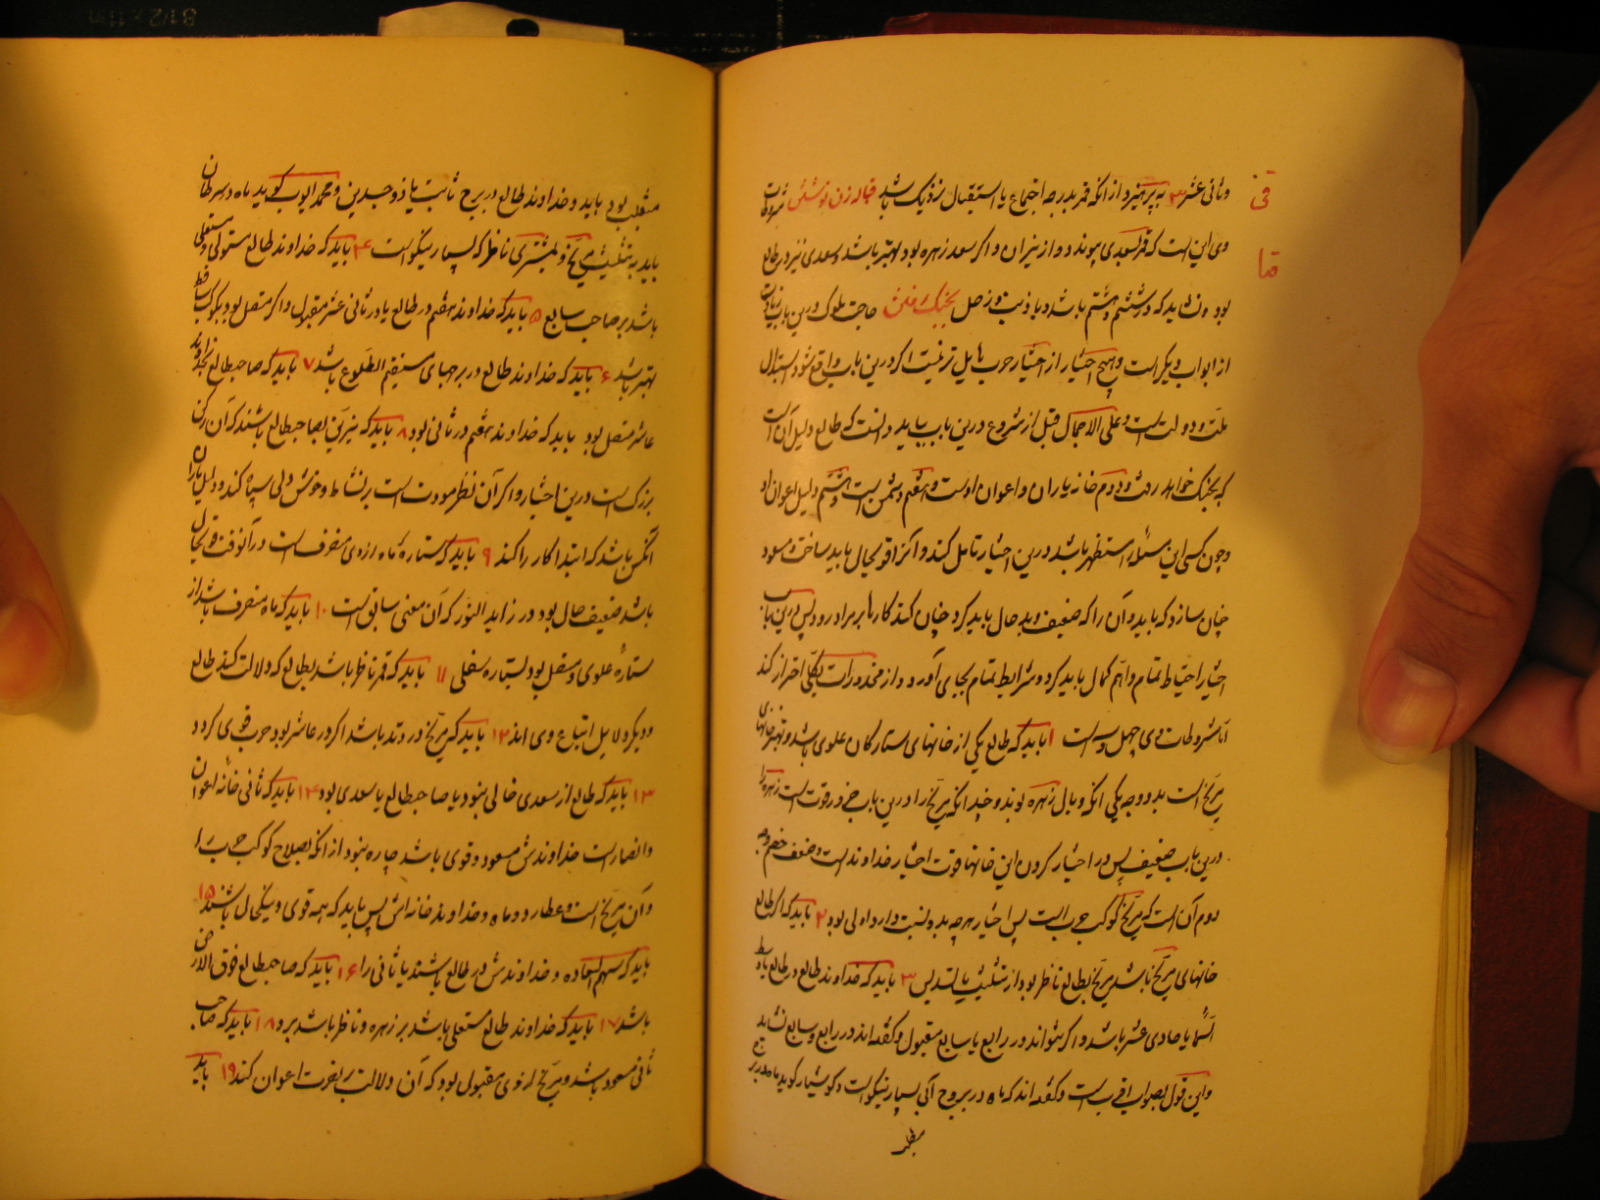 وثانی عشر ۳ بپرهیزد از آنکه قمر بدرجه اجتماع یا استقبال نزدیک باشد قباله زن نوشتن شروطات
وی این است که قمر بسعدی پیوندد و از نیران و اگر سعد زهره بود بهتر باشد و سعدی نیز در طالع
بود و نشاید که در ششم و هشتم باشد و با ذنب و زحل بجنک رفتن حاجت ملوک درین باب زیادت
از ابواب دیگر است و هیچ اختیار از اختیار حرب هایل تر نیست اگر درین باب واقع شود استبدال
ملت و دولت است و علی الاجمال قبل از شروع درین باب بباید دانست که طالع دلیل آن است
که بجنک خواهد رفت و دوم خانه یاران و اعوان اوست و هفتم دشمن است و هشتم دلیل اعوان او
و چون کسی این مسئله را مستظهر باشد درین اختیار تامل کند و آنرا قوی حال باید ساخت و مسعود
چنان سازد که باید و آن را که ضعیف و بد حال باید کرد چنان کند کارها بر مراد رود پس درین باب
اختیار احتیاط تمام و اهم کمال باید کرد و شرایط تمام بجای آورد و از محذورات بکلی احتراز کند
اما شروطات وی چهل و است ۱ باید که طالع یکی از خانهای ستارکان علوی باشد و بهتر خانهای
مریخ است بدو وجه یکی آنکه وبال زهره بوند و چندانکه مریخ را درین باب قوت است زهره را
درین باب ضعیف پس در اختیار کردن این خانها قوت اختیار خداوند است و ضعف خصم وجه
دوم آن است که مریخ کوکب حرب است پس اختیار هر چه بدو نسبت دارد اولی بود ۲ باید که اگر طالع
خانهای مریخ نباشد مریخ بطالع ناظر بود از تثلیث یا تسدیس ۳ باید که خداوند طالع در طالع یا وسط
السما یا حادی عشر باشد و اگر نتواند در رابع یا سابع مقبول و گفته اند در رابع و سابع نشاید
و این قول بصواب اقرب است و گفته اند که ماه در بروج آبی بسیار نیکو است و کوشیار گوید ماه در برج
منقلب بود باید و خداوند طالع در برج ثابت یا ذو جسدین و محمد ایوب گوید ماه در سرطان
باید به تثلیث مریخ و مشتری ناظر که بسیار نیکو است ۴ باید که خداوند طالع مستولی و مستعلی
باشد بر صاحب سابع ۵ باید که خداوند هفتم در طالع یا در ثانی عشر مقبول و اگر متصل بود بکوکب ساقط
بهتر باشد ۶ باید که خداوند طالع در برجهای مستقیم الطلوع باشد ۷ باید که صاحب طالع بخداوند
عاشر متصل بود باید که خداوند هفتم در ثانی بود ۸ باید که نیرین بصاحب طالع باشند که آن رکن
بزرگ است درین اختیار و اگر آن نظر مودت است بر نشاط و خوش دلی سپاه کند و دلیل یاران
آنکس باشد که ابتدا کار را کند ۹ باید که ستاره ماه از وی منصرف است در آنوقت قوی حال
باشد ضعیف حال بود در زاید النور که آن معنی سابق است ۱۰ باید که ماه منصرف باشد از
ستاره علوی و متصل بود بستاره سفلی ۱۱ باید که قمر ناظر باشد بطالع که دلالت کند طالع
و دیگر دلایل اتباع وی اند ۱۲ باید که مریخ در وتد باشد اگر در عاشر بود حرب قوی گردد
۱۳ باید که طالع از سعدی خالی نبود یا صاحب طالع یا سعدی بود ۱۴ باید که ثانی خانه اعوان
و انصار است خداوندش مسعود و قوی باشد چاره نبود از آنکه بصلاح کوکب حرب را
و آن مریخ است و عطارد و ماه و خداوند خانه اش پس باید که همه قوی و نیکحال باشند ۱۵
باید که سهم السعاده و خداوندش در طالع باشند یا ثانی را ۱۶ باید که صاحب طالع فوق الارض
باشد ۱۷ باید که خداوند طالع مستعلی باشد بر زهره و ناظر باشد برو ۱۸ باید که صاحب
ثانی مسعود باشد و مریخ از وی مقبول بود که آن دلالت بر نصرت اعوان کند ۱۹ باید